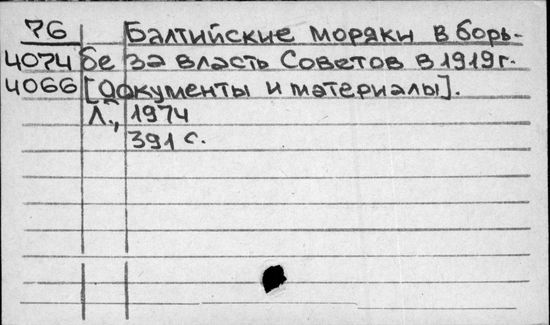 76 Балтийские моряки в борь-
4074 бе за власть Советов в 1919г.
4066 [документы и материалы].
Л., 1974
391 с.